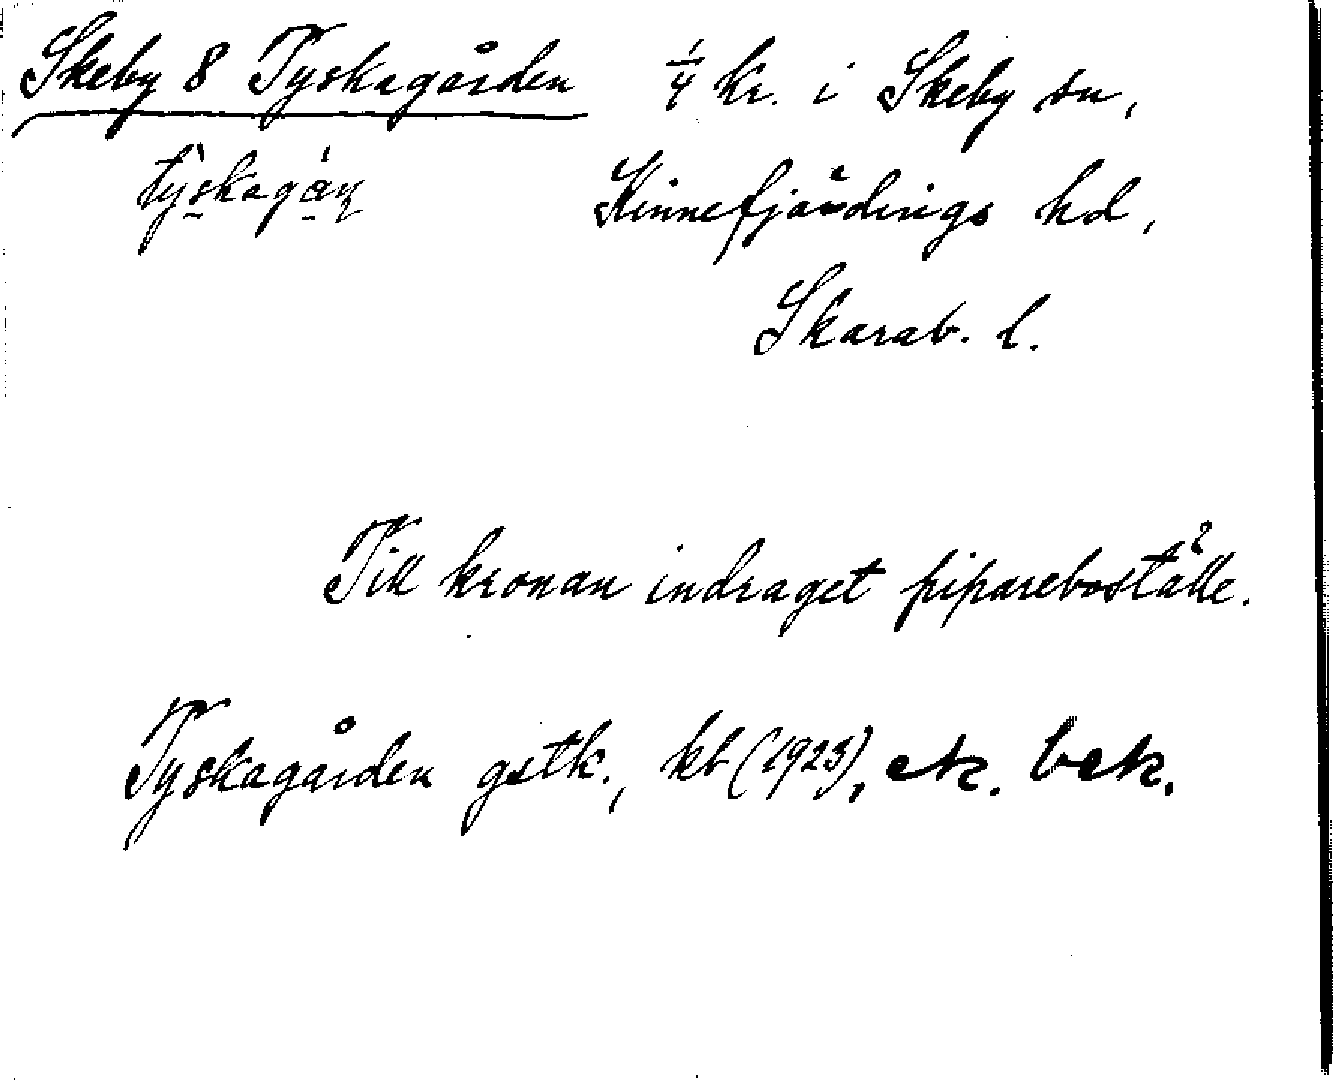 Skeby 8 Tyskagården ¼ kr. i Skeby sn,
tỳskagán Kinnefjärdings hd,
Skarab. l.
Till kronan indraget pipareboställe.
Tyskagården gstk., kb (1923), ek. bek.